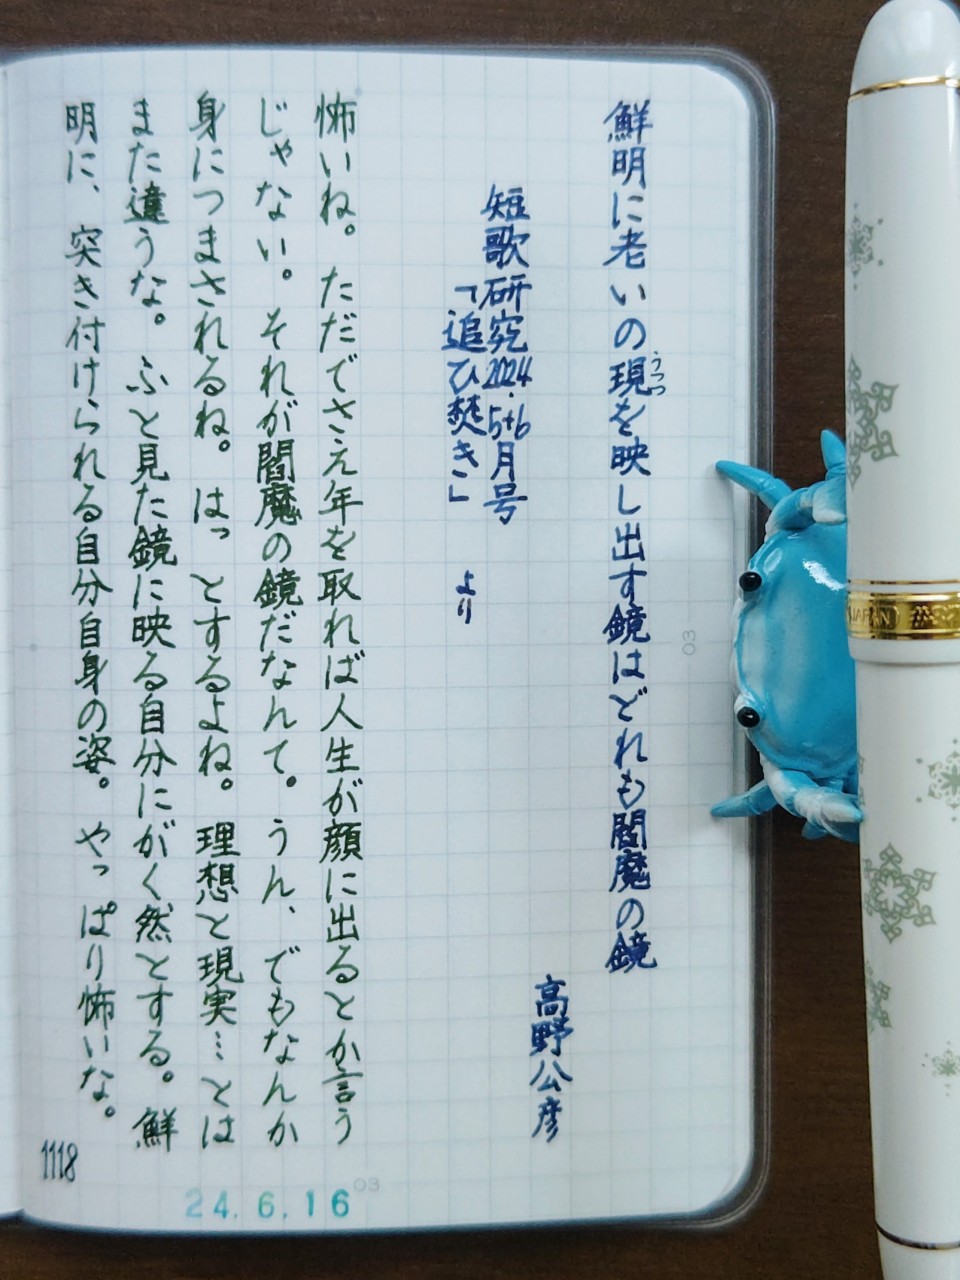 鮮明に老いの現を映し出す鏡はどれも閻魔の鏡
うつつ
高野公彦
短歌研究2024.5+6月号
「追ひ焚き」 より
怖いね。ただでさえ年を取れば人生が顔に出るとか言う
じゃない。それが閻魔の鏡だなんて。うん、でもなんか
身につまされるね。はっとするよね。理想と現実…とは
また違うな。ふと見た鏡に映る自分にがく然とする。鮮
明に、突き付けられる自分自身の姿。やっぱり怖いな。
1118
24.6.16
03
03
JAPAN